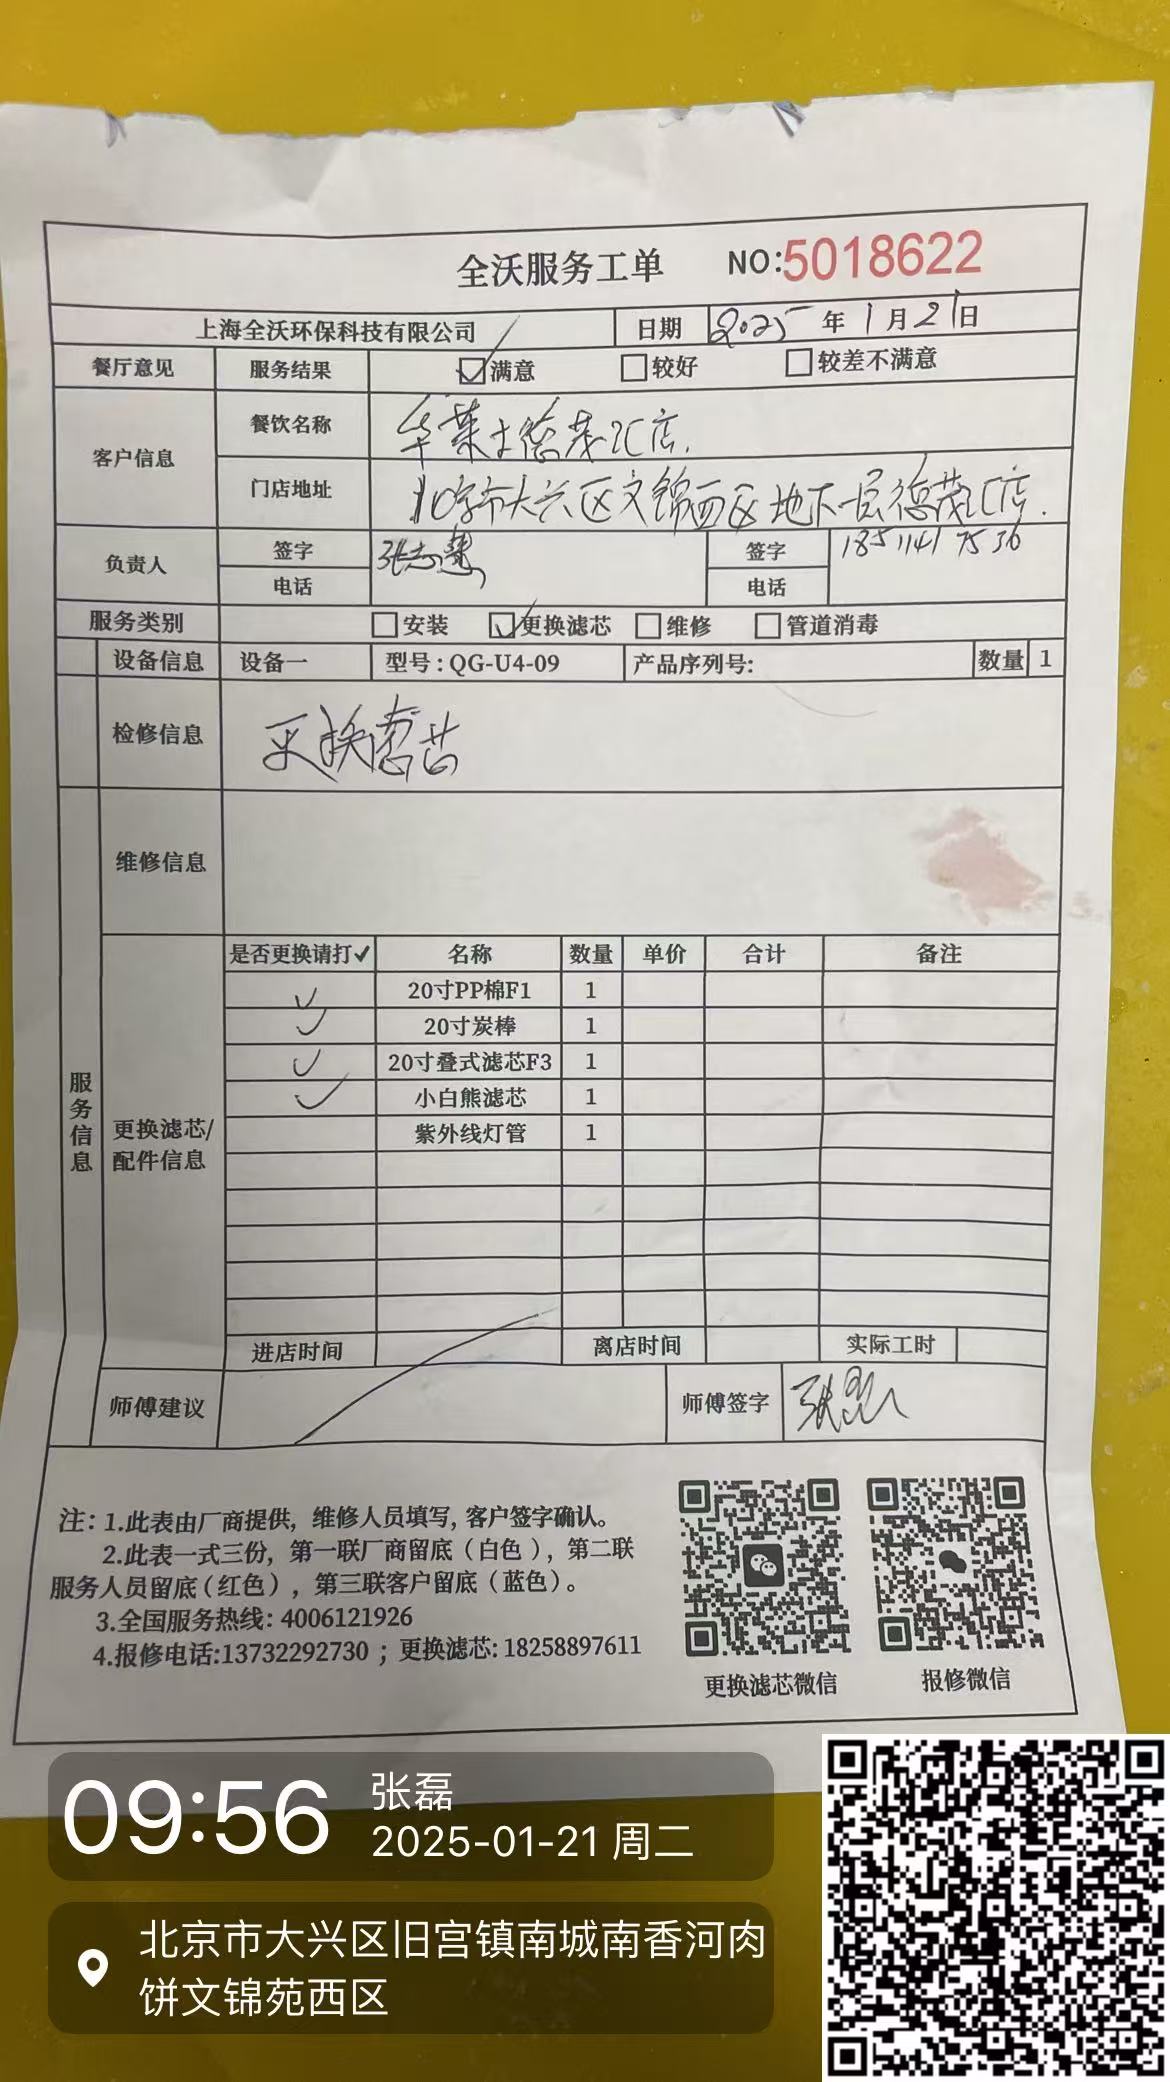 全沃服务工单 NO:5018622
上海全沃环保科技有限公司 日期 2025年1月21日
餐厅意见 服务结果 满意 较好 较差不满意
客户信息 餐饮名称 华莱士德茂汇店.
门店地址 北京市大兴区文锦西区地下一层德茂汇店.
负责人 签字 张志慧 签字 18511417536
电话 电话
服务类别 安装 更换滤芯 维修 管道消毒
设备信息 设备一 型号:QG-U4-09 产品序列号: 数量 1
检修信息 更换滤芯
维修信息
服务信息
更换滤芯/
配件信息
是否更换请打✓ 名称 数量 单价 合计 备注
✓ 20寸PP棉F1 1
✓ 20寸炭棒 1
✓ 20寸叠式滤芯F3 1
✓ 小白熊滤芯 1
紫外线灯管 1
进店时间 离店时间 实际工时
师傅建议 师傅签字 张磊
注:1.此表由厂商提供,维修人员填写,客户签字确认。
2.此表一式三份,第一联厂商留底(白色),第二联
服务人员留底(红色),第三联客户留底(蓝色)。
3.全国服务热线:4006121926
4.报修电话:13732292730;更换滤芯:18258897611
更换滤芯微信 报修微信
09:56 张磊
2025-01-21 周二
北京市大兴区旧宫镇南城南香河肉
饼文锦苑西区